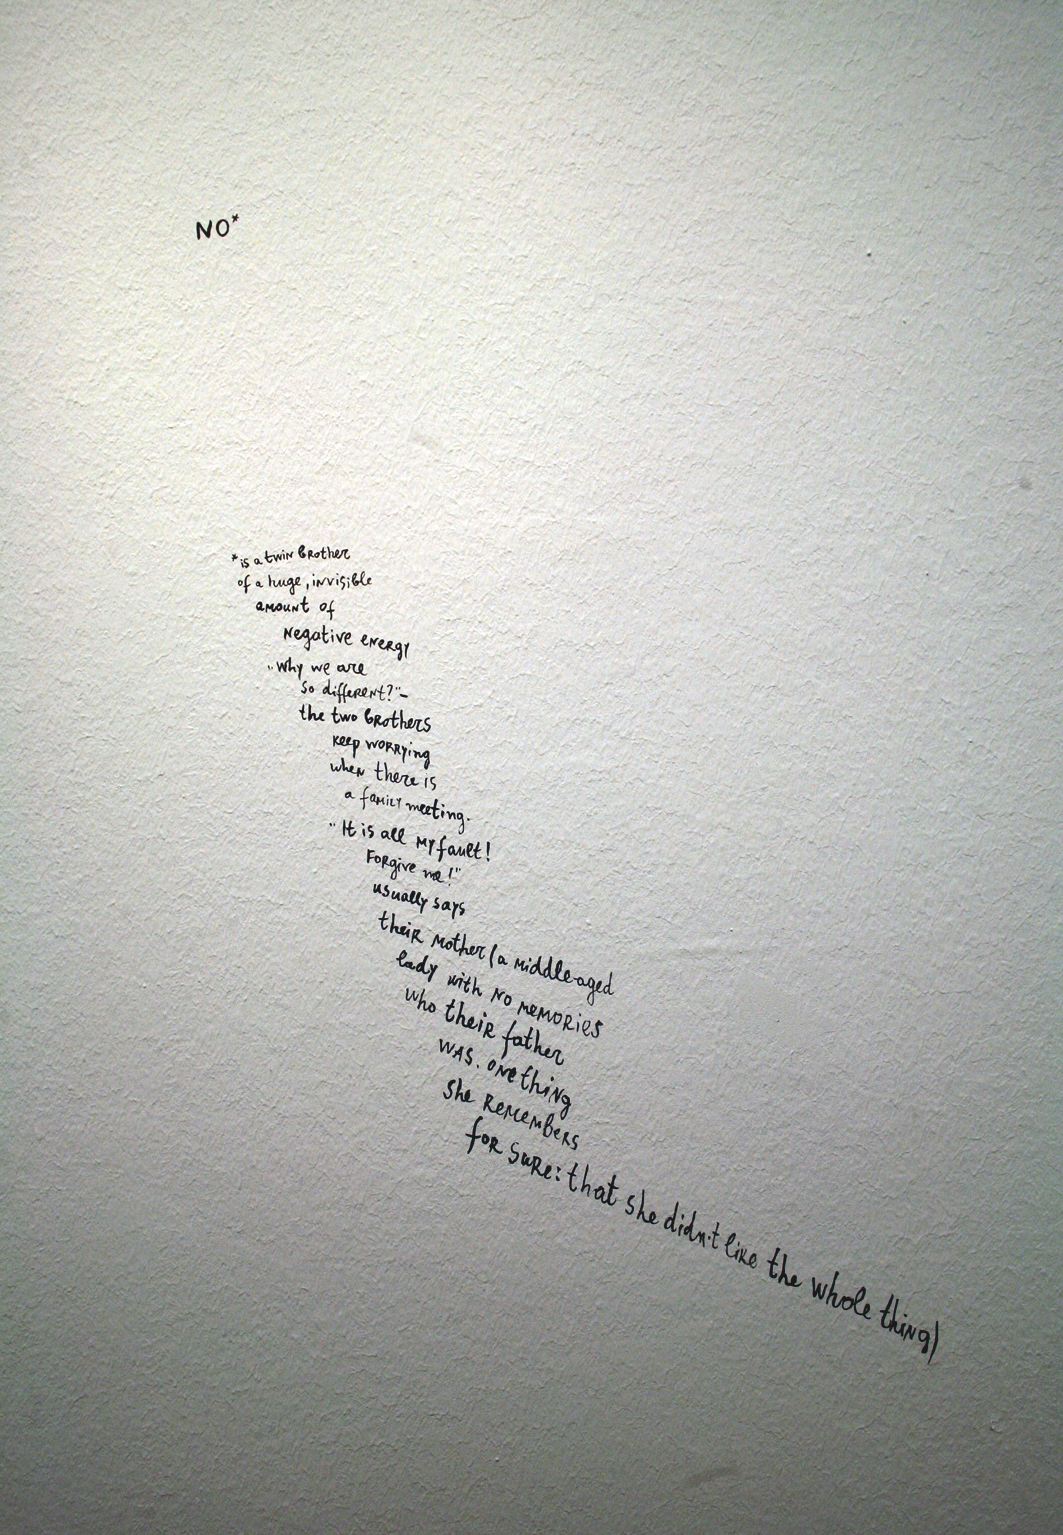 NO*
*is a twin brother
of a huge, invisible
amount of
negative energy
"Why we are
so different?"–
the two brothers
keep worrying
when there is
a family meeting.
"It is all my fault!
Forgive me!"
usually says
their mother (a middle-aged
lady with no memories
who their father
was. One thing
she remembers
for sure: that she didn't like the whole thing)